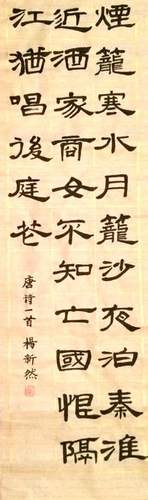 煙籠寒水月籠沙夜泊秦淮
近酒家商女不知亡國恨隔
江猶唱後庭花
唐詩一首 楊新然